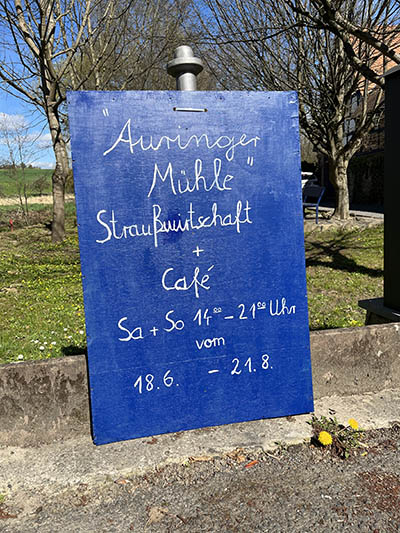 "Auringer
Mühle"
Straußwirtschaft
+
Café
Sa + So 14⁰⁰ - 21⁰⁰ Uhr
vom
18.6. - 21.8.